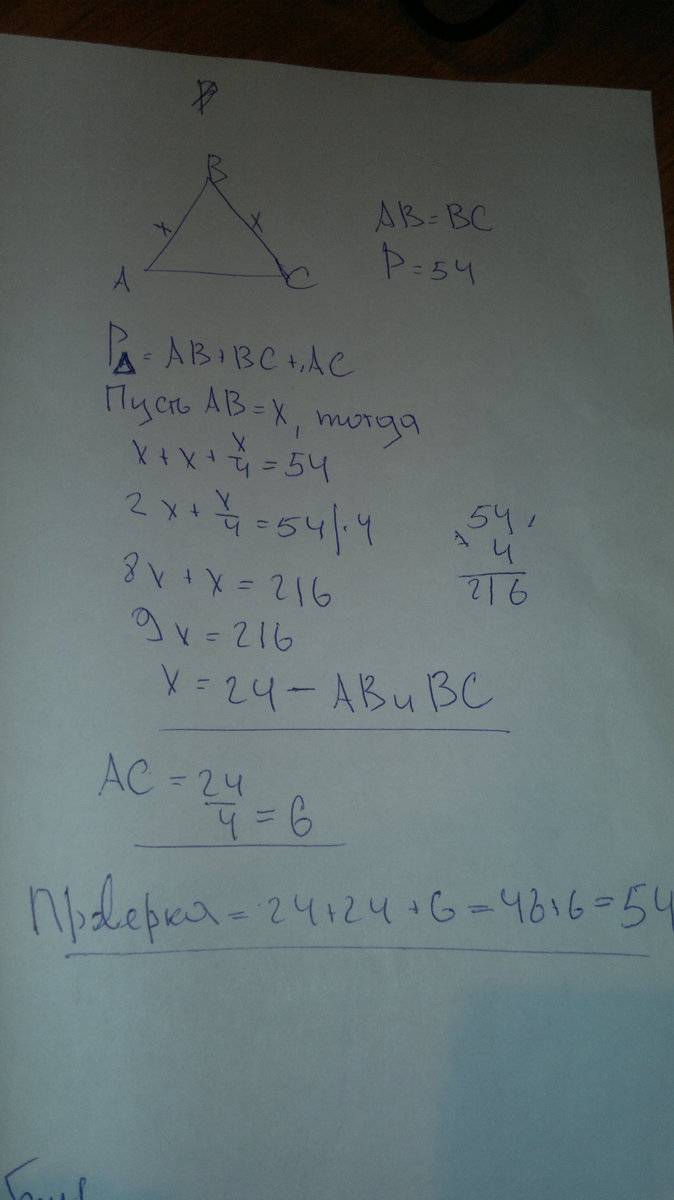 B
x x
A C
AB = BC
P = 54
P△ = AB + BC + AC
Пусть AB = x, тогда
x + x + x/4 = 54
2x + x/4 = 54 | · 4
54
× 4
216
8x + x = 216
9x = 216
x = 24 — AB и BC
AC = 24/4 = 6
Проверка = 24 + 24 + 6 = 48 + 6 = 54